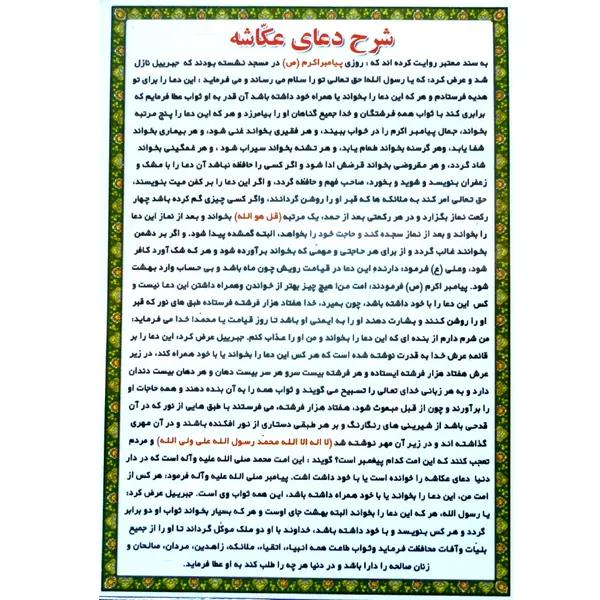 شرح دعای عکّاشه
به سند معتبر روایت کرده اند که : روزی پیامبراکرم (ص) در مسجد نشسته بودند که جبرییل نازل
شد و عرض کرد: که یا رسول الله! حق تعالی تو را سلام می رساند و می فرماید : این دعا را برای تو
هدیه فرستادم و هر که این دعا را بخواند یا همراه خود داشته باشد آن قدر به او ثواب عطا فرمایم که
برابری کند با ثواب همه فرشتگان و خدا جمیع گناهان او را بیامرزد و هر که این دعا را پنج مرتبه
بخواند، جمال پیامبر اکرم را در خواب ببیند، و هر فقیری بخواند غنی شود، و هر بیماری بخواند
شفا یابد، وهر گرسنه بخواند طعام یابد، و هر تشنه بخواند سیراب شود ، و هر غمگینی بخواند
شاد گردد، و هر مقروضی بخواند قرضش ادا شود و اگر کسی را حافظه نباشد آن دعا را با مشک و
زعفران بنویسد و شوید و بخورد، صاحب فهم و حافظه گردد، و اگر این دعا را بر کفن میت بنویسند،
حق تعالی امر کند به ملائکه ها که قبر او را روشن گردانند، واگر کسی چیزی گم کرده باشد چهار
رکعت نماز بگزارد و در هر رکعتی بعد از حمد، یک مرتبه (قل هو الله) بخواند و بعد از نماز این دعا
را بخواند و بعد از نماز سجده کند و حاجت خود را بخواهد، البته گمشده پیدا شود. و اگر بر دشمن
بخوانند غالب گردد و از برای هر حاجتی و مهمّی که بخواند برآورده شود و هر که شک آورد کافر
شود، وعلی (ع) فرمود: دارنده این دعا در قیامت رویش چون ماه باشد و بی حساب وارد بهشت
شود. پیامبر اکرم (ص) فرمودند: امت من! هیچ چیز بهتر از خواندن وهمراه داشتن این دعا نیست و
کس این دعا را با خود داشته باشد، چون بمیرد، خدا هفتاد هزار فرشته فرستاده طبق های نور که قبر
او را روشن کنند و بشارت دهند او را به ایمنی او باشد تا روز قیامت یا محمّد! خدا می فرماید:
من شرم دارم از بنده ای که این دعا را بخواند و من او را عذاب کنم. جبرییل عرض کرد: این دعا را بر
قائمه عرش خدا به قدرت نوشته شده است که هر کس این دعا را بخواند یا با خود همراه کند، در زیر
عرش هفتاد هزار فرشته ایستاده و هر فرشته بیست سرو هر سر بیست دهان و هر دهان بیست دندان
دارد و به هر زبانی خدای تعالی را تسبیح می گویند و ثواب همه را به آن بنده دهند و همه حاجات او
را برآورند و چون از قبل مبعوث شود، هفتاد هزار فرشته، می فرستند با طبق هایی از نور که در آن
قدحی باشد از شیرینی های رنگارنگ و بر هر طبقی دستاری از نور افکنده باشند و در آن مهری
گذاشته اند و در زیر آن مهر نوشته شد (لا اله الا الله محمّد رسول الله علی ولی الله) و مردم
تعجب کنند که این امت کدام پیغمبر است؟ گویند : این امت محمد صلی الله علیه وآله است که در دار
دنیا دعای عکاشه را خوانده است یا با خود داشت اشت. پیامبر صلی الله علیه و آله فرمود: هر کس از
امت من، این دعا را بخواند یا با خود همراه داشته باشد، این همه ثواب وی است. جبرییل عرض کرد:
یا رسول الله، هر که این دعا را بخواند البته بهشت جای اوست و هر که بسیار بخواند ثواب او دو برابر
گردد و هر کس بنویسد و با خود داشته باشد، خداوند با او دو ملک موکّل گرداند تا او را از جمیع
بلیّات وآفات محافظت فرماید وثواب طاعت همه انبیاء، اتقیاء، ملائکه، زاهدین، مردان، صالحان و
زنان صالحه را دارا باشد و در دنیا هر چه را طلب کند به او عطا فرماید.